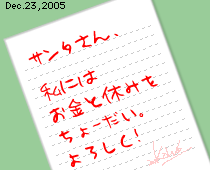 Dec.23,2005
サンタさん、
私には
お金と休みを
ちょーだい。
よろしく!